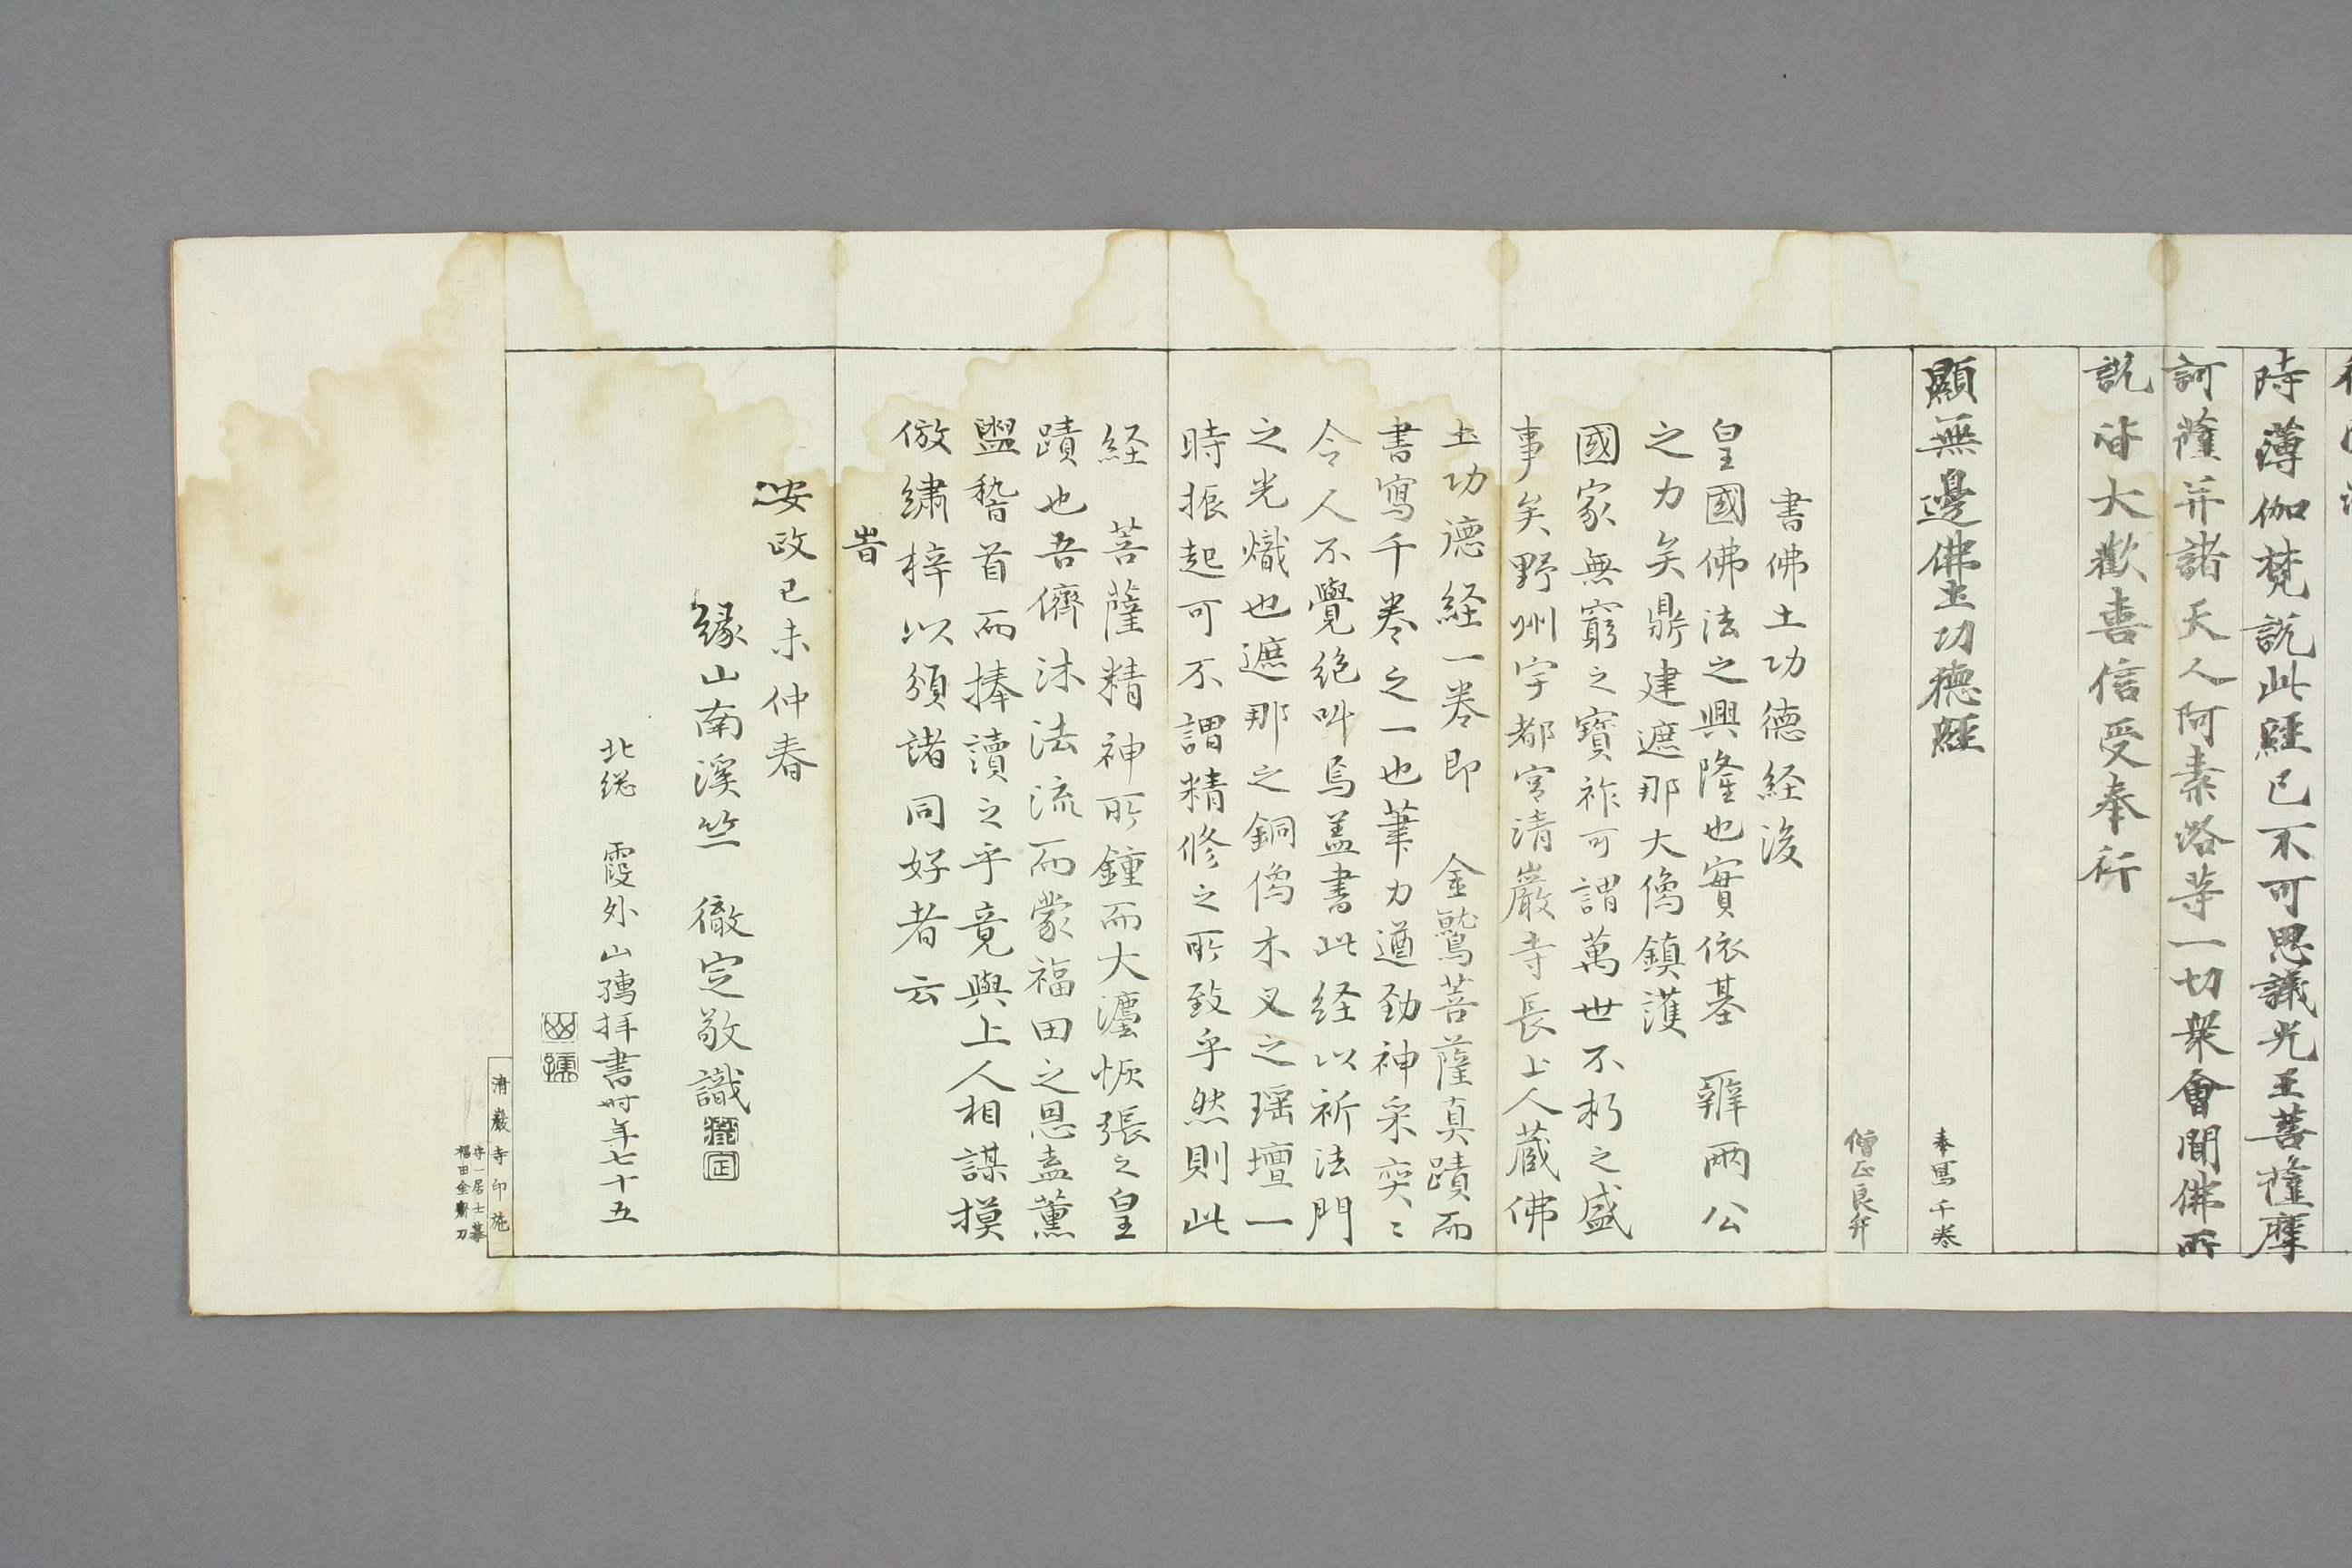 時薄伽梵說此經已不可思議光王菩薩摩
訶薩并諸天人阿素洛等一切衆會聞佛所
說皆大歡喜信受奉行
顯無邊佛土功德經
奉寫千巻
僧正良弁
書佛土功德経後
皇國佛法之興隆也實依基 辨兩公
之力矣鼎建遮那大像鎮護
國家無窮之寶祚可謂萬世不朽之盛
事矣野州宇都宮清巖寺長上人蔵佛
土功德経一巻即 金鷲菩薩真蹟而
書寫千巻之一也筆力遒勁神采奕〻
令人不覺絶叫焉盖書此経以祈法門
之光熾也遮那之銅像木叉之瑶壇一
時振起可不謂精修之所致乎然則此
経 菩薩精神所鍾而大灋恢張之皇
蹟也吾儕沐法流而蒙福田之恩盍薰
盥稽首而捧讀之乎竟與上人相謀摸
倣繍梓以頒諸同好者云
旹
安政己未仲春
縁山南溪竺 徹定敬識
北総 霞外山孺拝書时年七十五
清巖寺印施
守一居士摹
福田金齋刀